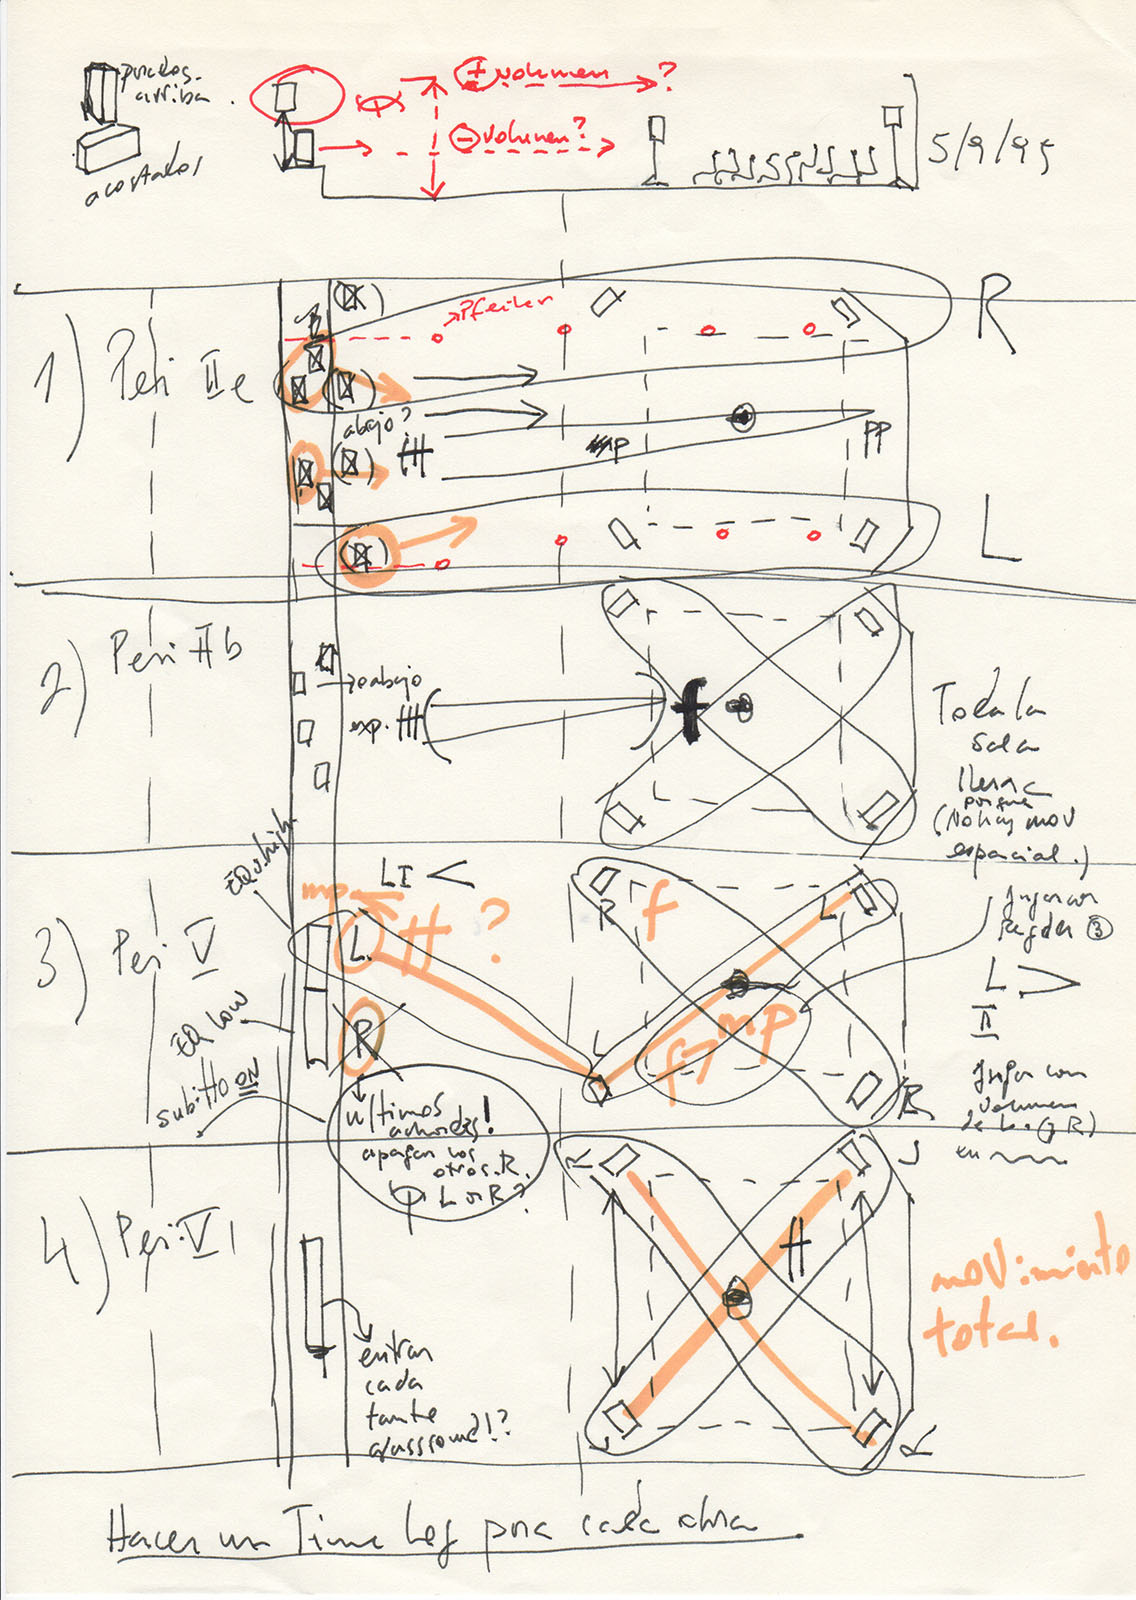 parados
arriba.
acostados
+ volumen ?
- volumen?
5/9/95
1) Peri IIe
Pfeiler
R
abajo?
ff
mp
pp
L
2) Peri IIb
abajo
exp. fff
f
Toda la
sala
llena
porque
(No hay mov
espacial.)
EQ high
mp
LI <
ff ?
3) Peri V
L
R
R
f
L
L
f > mp
R
Jugar con
L >
II
Jugar con
volumen
de L (y R)
en
EQ low
subitto ON
ultimos
acordes!
apagar los
otros. R.
L or R?
4) Peri VI
R
L
ff
L
R
movimiento
total.
entran
cada
tanto
Hacer un Time Leg para cada obra